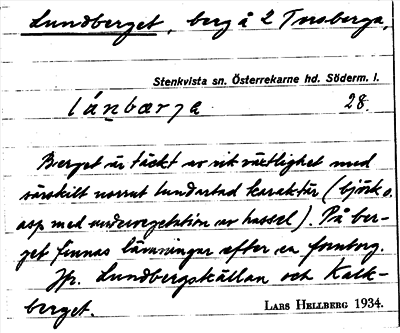 Lundberget, berg å 2 Torsberga.
Stenkvista sn. Österrekarne hd. Söderm. l.
lánbærja 28.
Berget är täckt av rik växtlighet med
särskilt norrut lundartad karaktär (björk o.
asp med undervegetation av hassel). På ber-
get finnas lämningar efter en fornborg.
Jfr. Lundbergskällan och Kalk-
berget. LARS HELLBERG 1934.